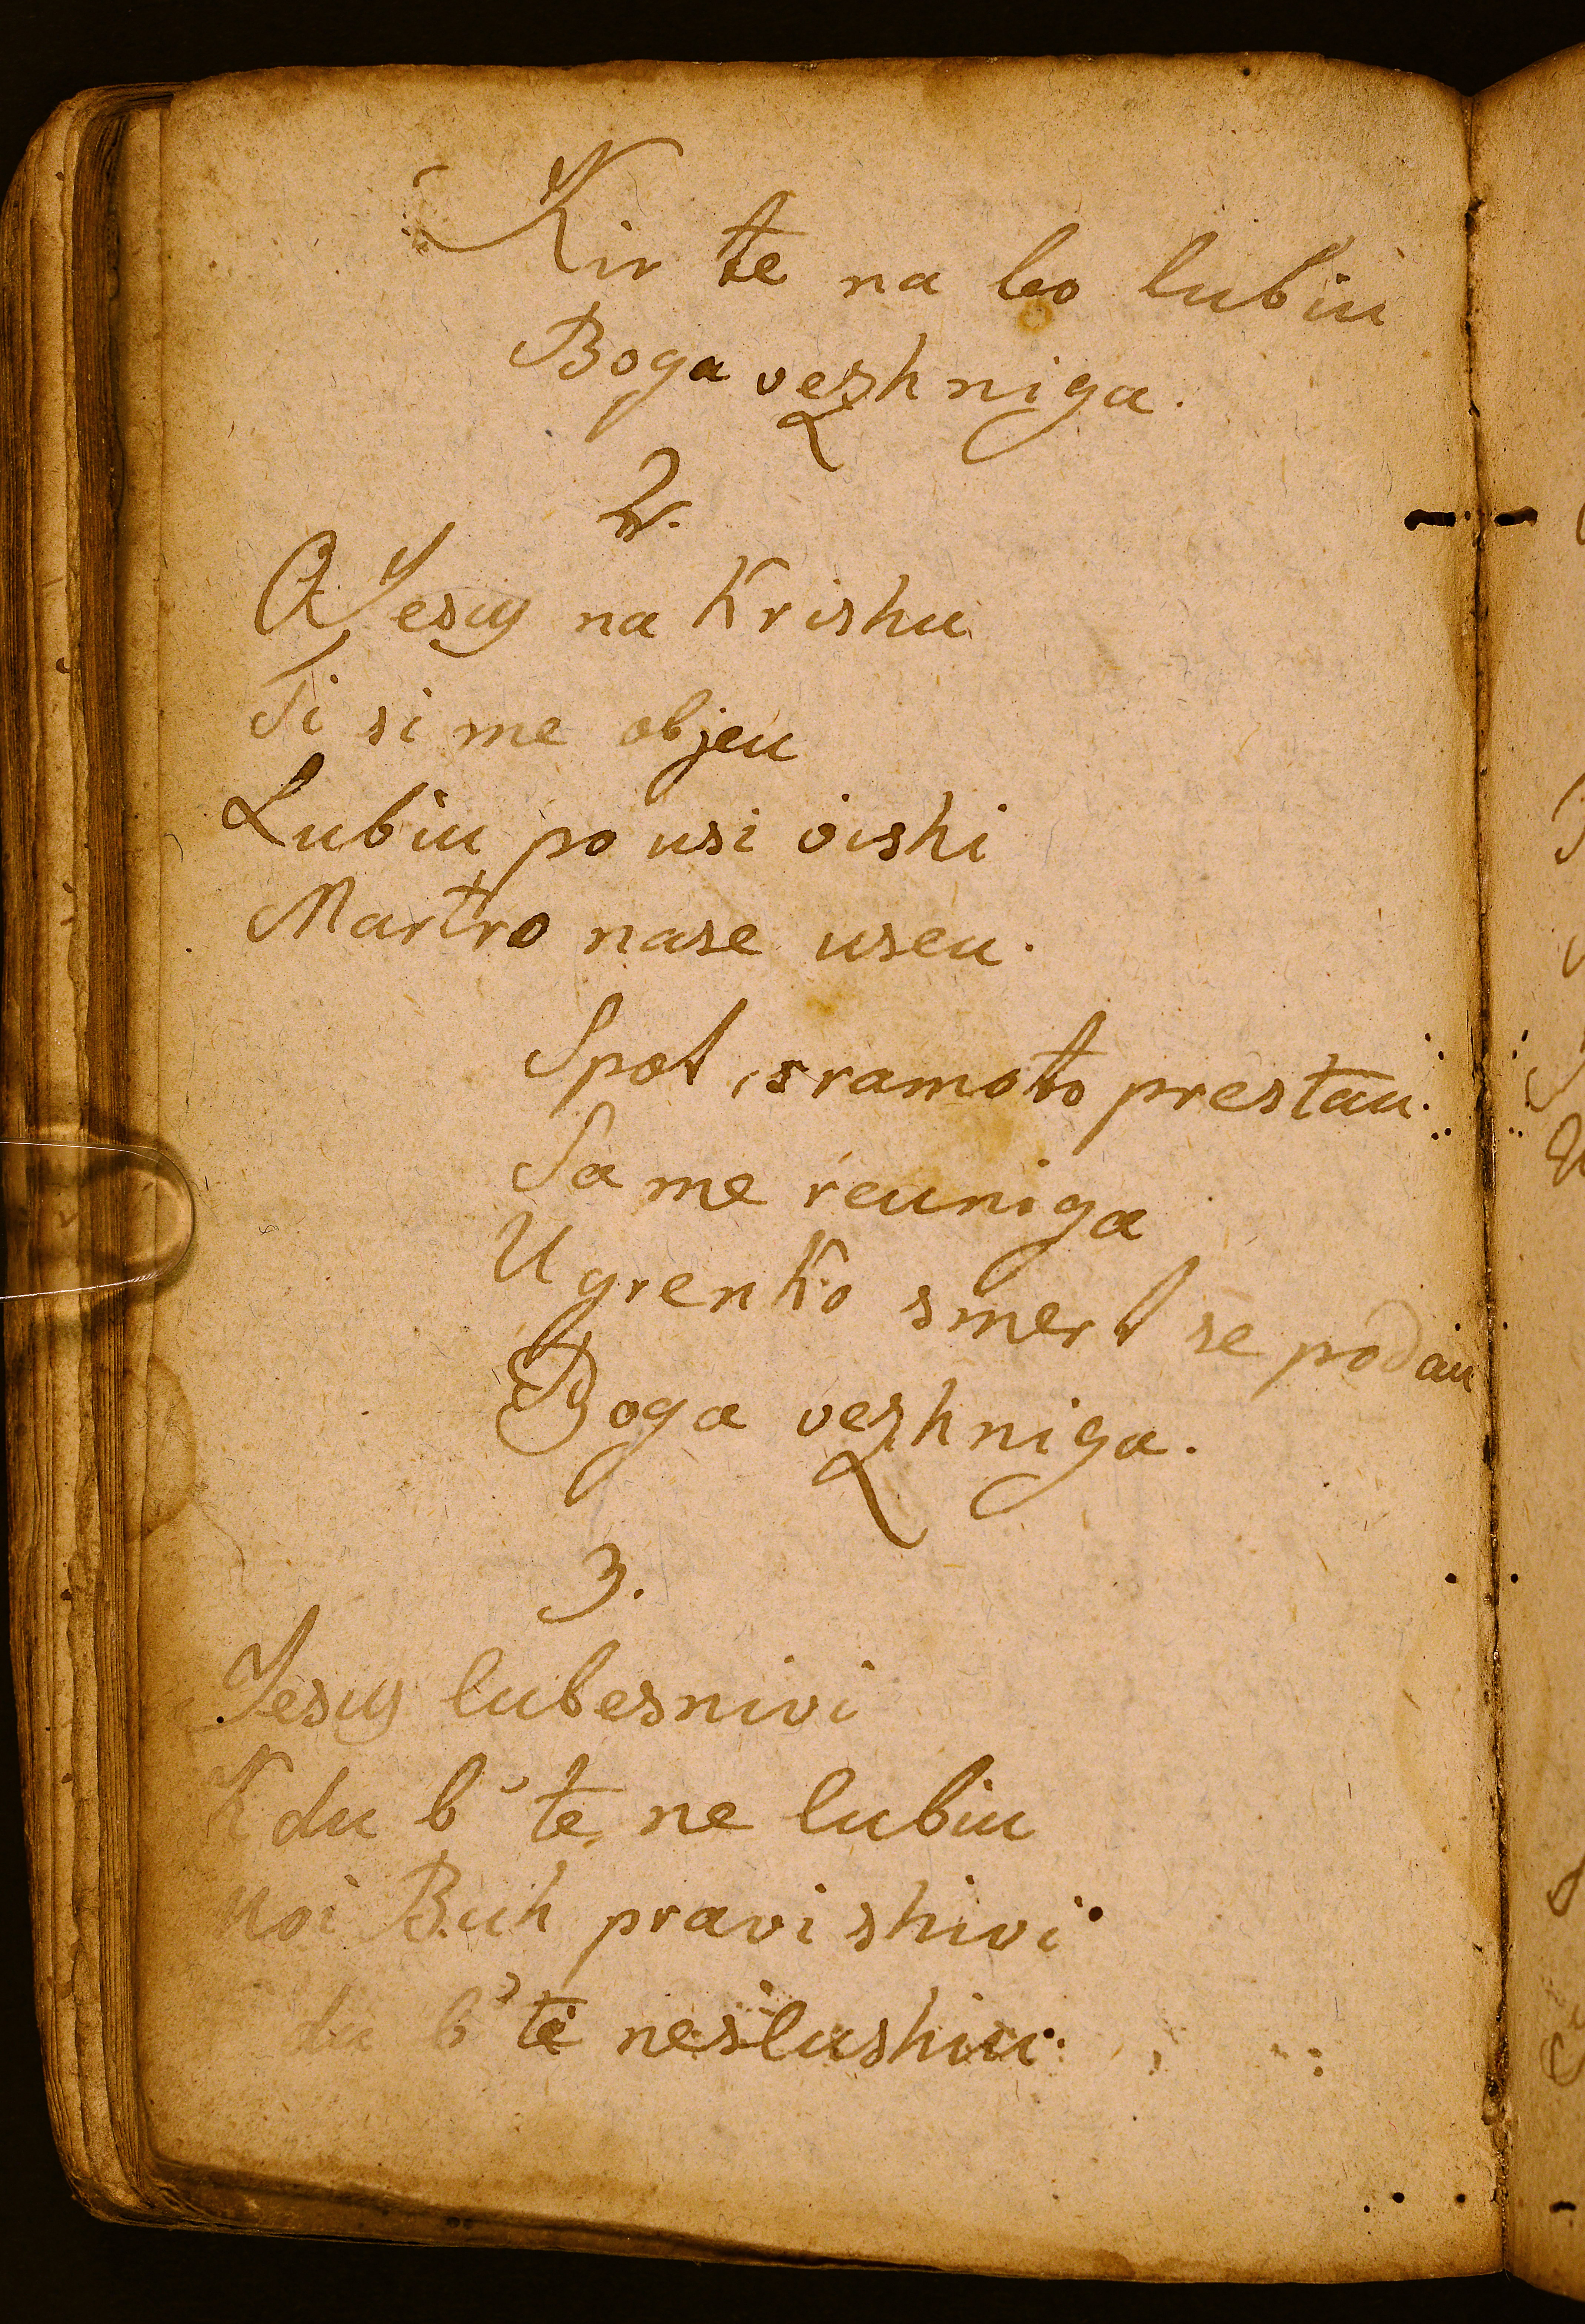 Kir te na bo lubiu
Boga vezhniga.
2.
O Jesus na Krishu
Ti si me objeu
Lubiu po usi vishi
Martro nase useu.
Spot, sramoto prestau.
Sa me reuniga
U grenko smert se podau
Boga vezhniga.
3.
Jesus lubesnivi
Kdu b' te ne lubiu
Moi Buh pravi shivi
du b' te neslushiu